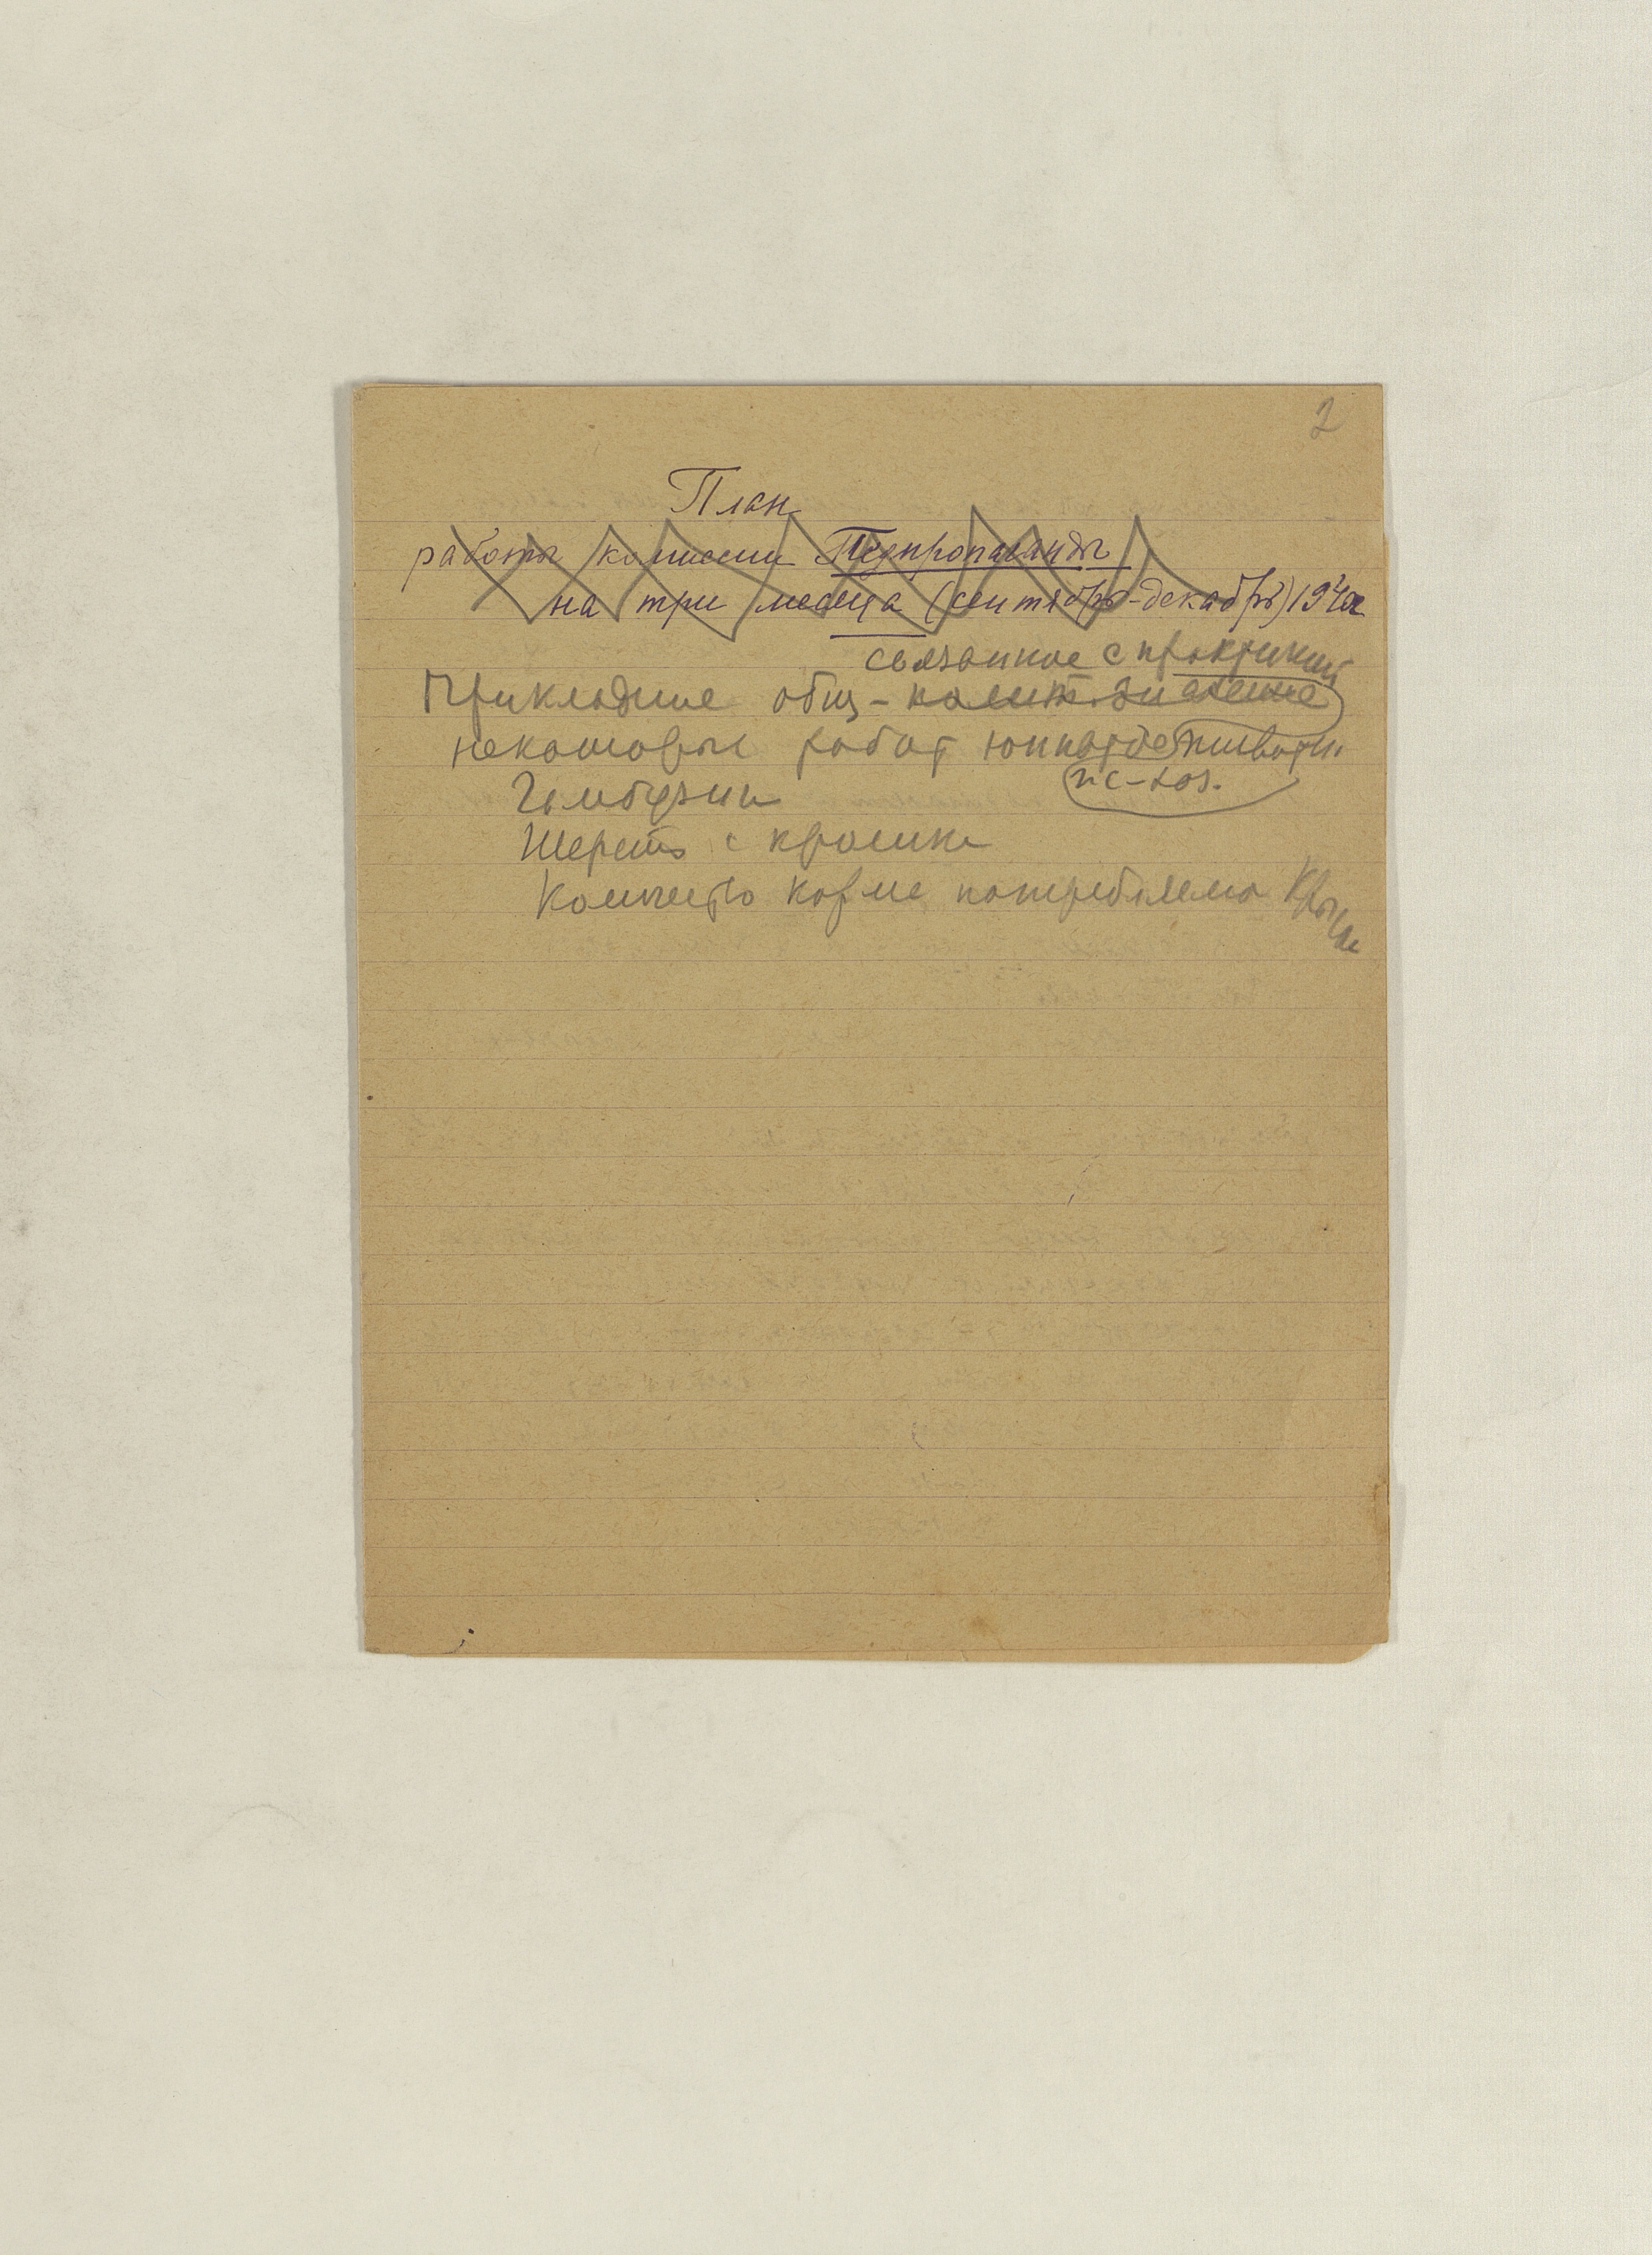 2
План
работы комиссии Педпропаганды
на три месяца (сентябрь-декабрь) 194
связанное с практикой
Прикладное общ-полит. значение
некоторых работ юннатов животн.
с-хоз.
Гамбузии
Шерсть с кролика
Количество корма потребляемо крысы